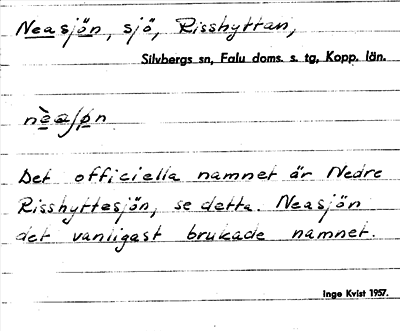 Neasjön, sjö, Risshyttan,
Silvbergs sn, Falu doms. s. tg, Kopp. län.
nèaʃøn
Det officiella namnet är Nedre
Risshyttesjön, se detta. Neasjön
det vanligast brukade namnet.
Inge Kvist 1957.